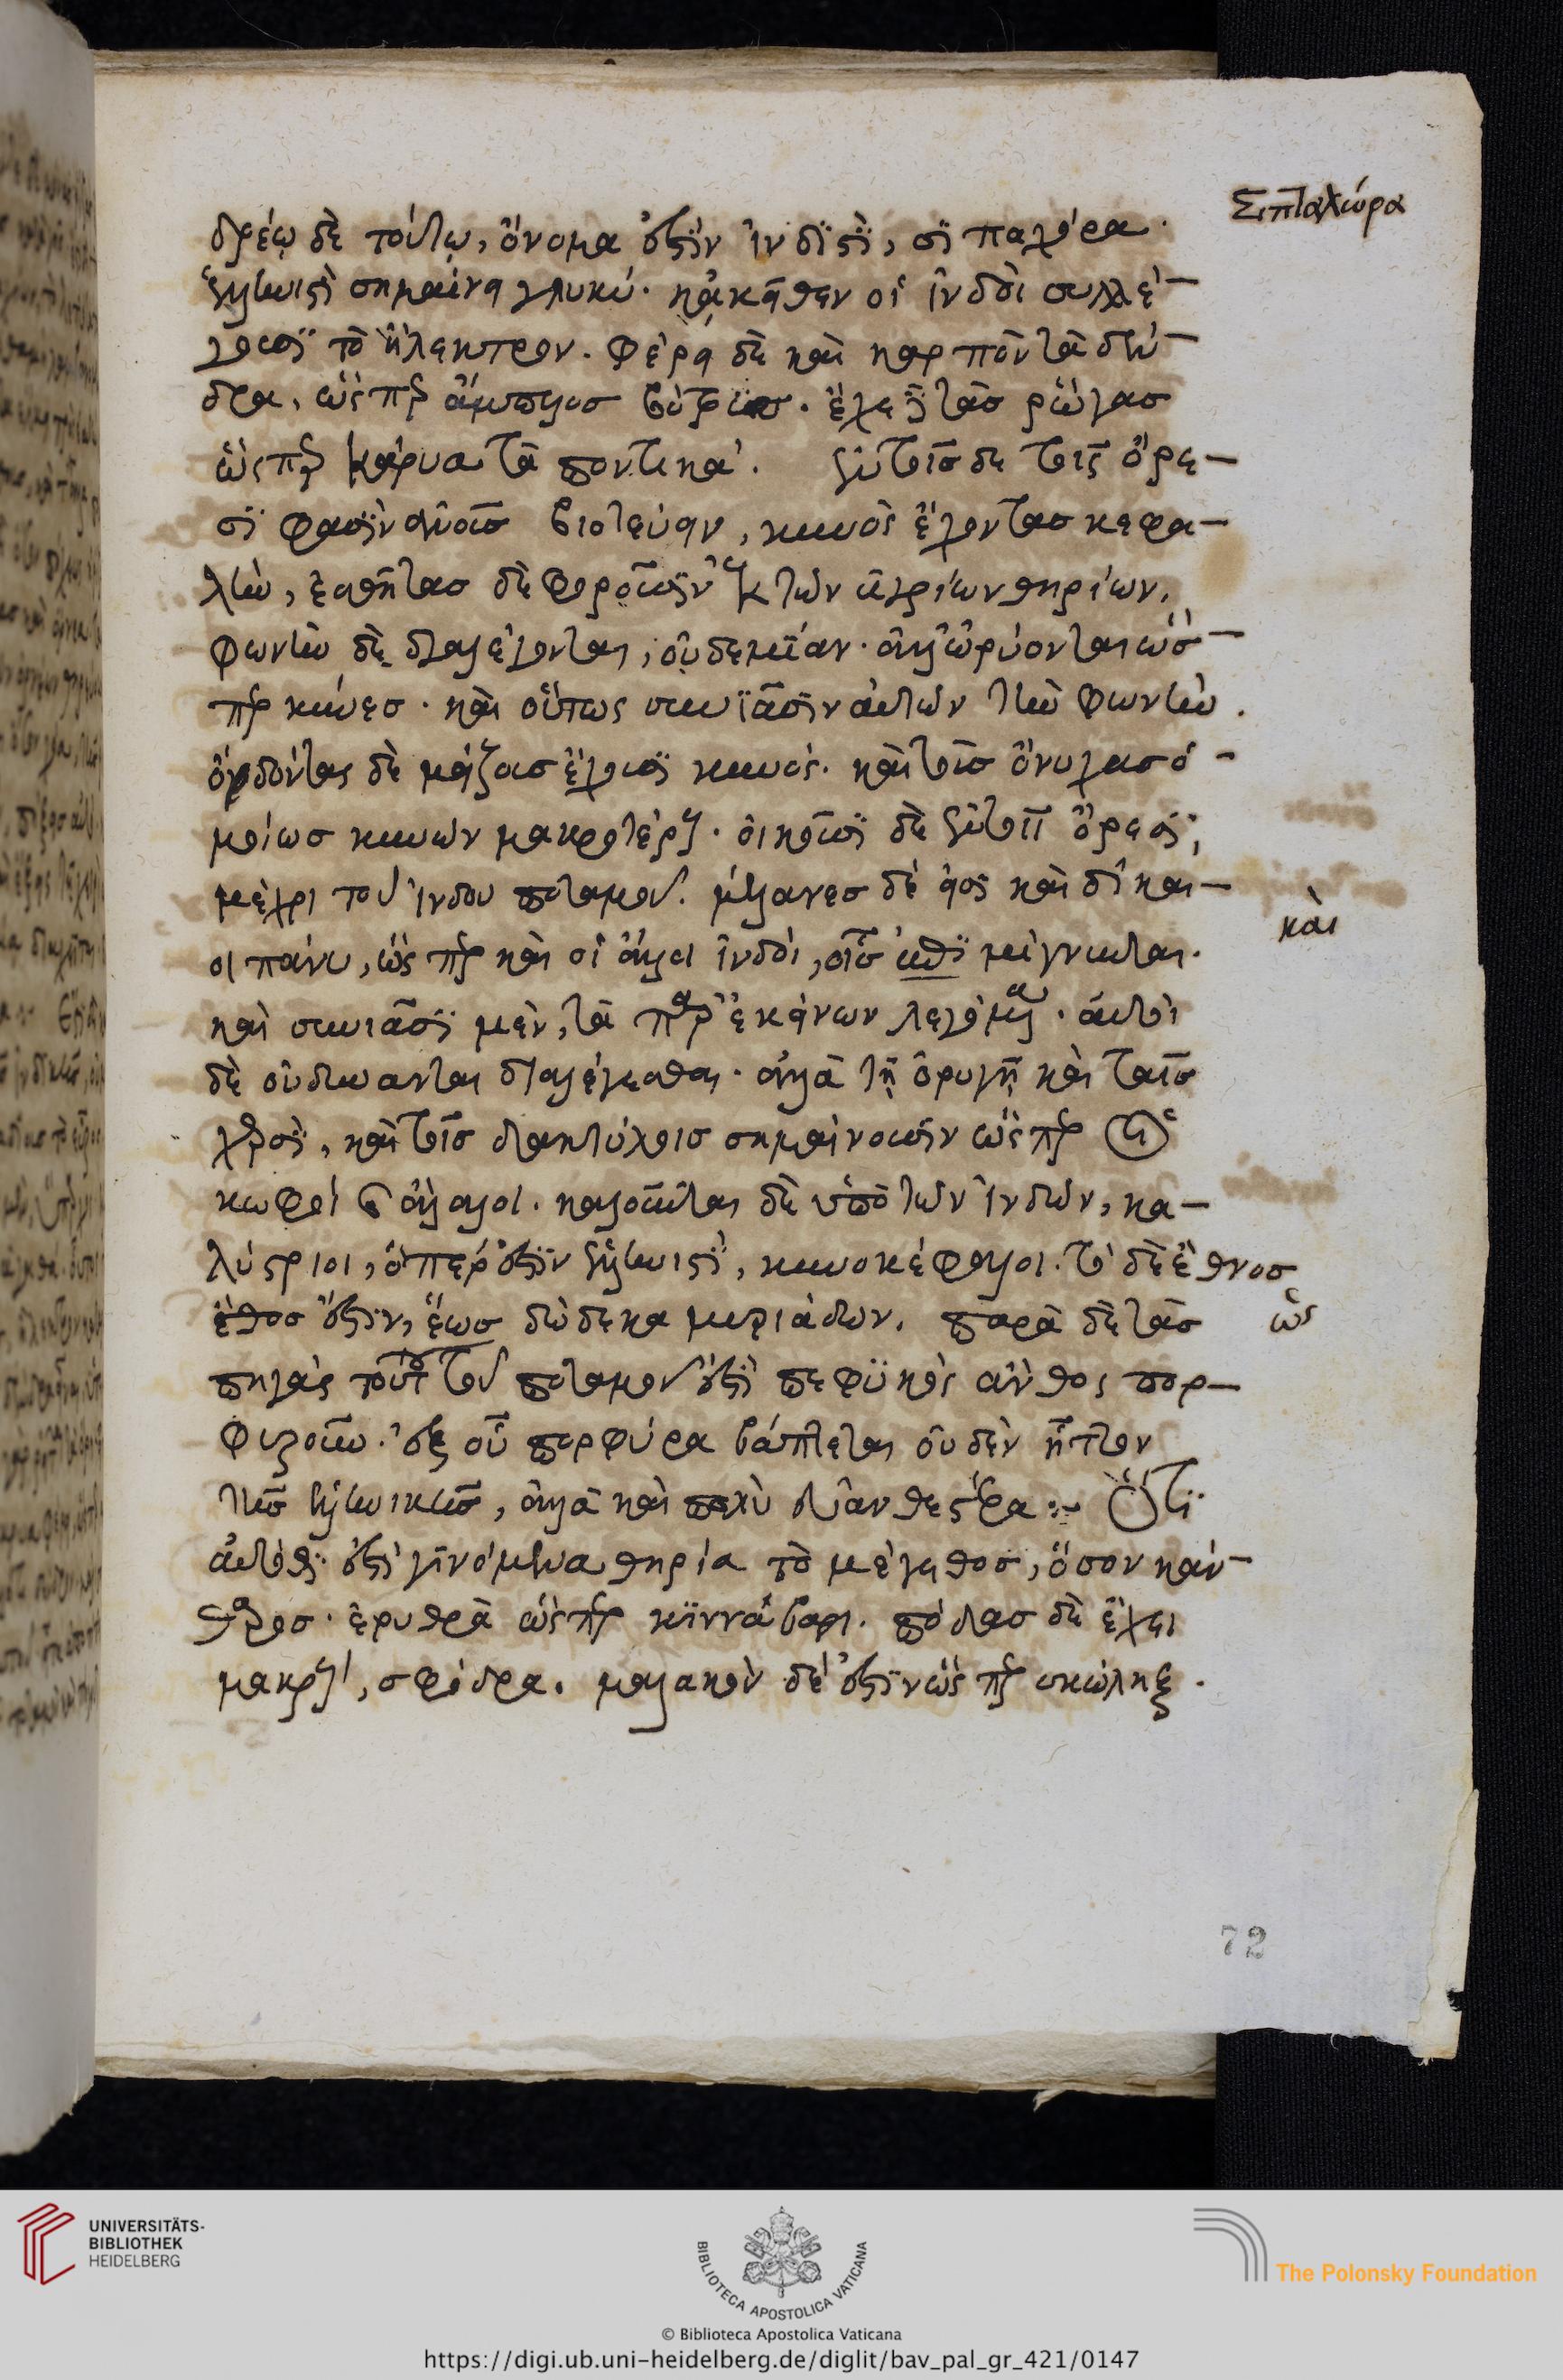 Σιπταχώρα
δρέῳ δὲ τούτῳ, ὄνομα ἐστὶν ἰνδϊστὶ, σϊ παχόρα·
ἑλληνιστὶ σημαίνει γλυκύ· κἀκεῖθεν οἱ ἰνδοὶ συλλέ-
γουσϊ τὸ ἤλεκτρον. φέρει δὲ καὶ καρπὸν τὰ δέν-
δρα, ὥσπερ ἄμπελοσ βότρυσ. ἔχει δὲ τὰσ ῥώγασ
ὥσπερ κάρυα τὰ ποντικά. ἐν τοῖσ δε τοῖς ὄρε-
σϊ φασὶν ἀνουσ βιοτεύειν, κυνὸς ἔχοντασ κεφα-
λὴν, ἐσθῆτασ δὲ φοροῦσιν ἐκ τῶν ἀγρίων θηρίων.
φωνὴν δὲ διαλέγονται, οὐδεμϊάν. ἀλλ' ὠρύονται ὥσ-
περ κύνεσ. καὶ οὕτως συνϊᾶσιν αὐτῶν τὴν φωνὴν.
ὀδόντας δὲ μείζασ ἔχουσϊ κυνός. καὶ τοὺσ ὄνυχασ ὁ-
μοίωσ κυνῶν μακροτέρους. οἰκοῦσϊ δὲ ἐν τοῖς ὄρεσϊ,
μέχρι τοῦ ἰνδου ποταμοῦ. μέλανεσ δέ εἰσϊ καὶ δίκαι-
καὶ
οι πάνυ, ὥσπερ καὶ οἱ ἄλλοι ἰνδοὶ, οἷσ ἐπϊ μίγνυνται.
καὶ συνιᾶσϊ μὲν, τὰ παρ' ἐκείνων λεγόμενα. αὐτοὶ
δὲ οὐ δύνανται διαλέγεσθαι. ἀλλὰ τῇ ὀρυγῇ καὶ ταῖσ
χερσὶ, καὶ τοῖσ δακτύλοισ σημαίνουσιν ὥσπερ οἱ
κωφοὶ καὶ ἄλαλοι. καλοῦνται δὲ ὑπὸ τῶν ἰνδῶν, κα-
λύστριοι, ὅπερ ἐστὶν ἑλληνιστὶ, κυνοκέφαλοι. τὸ δὲ ἔθνοσ
ἔθοσ ἐστὶν, ἕωσ δώδεκα μυριάδων. παρὰ δὲ τὰσ
ὡς
πηγὰς τούτου τοῦ ποταμοῦ ἐστὶ πεφϋκὸς ἄνθος πορ-
φυροῦν. ἐξ οὗ πορφύρα βάπτεται οὐδὲν ἧττον
τῆσ ἑλληνικῆσ, ἀλλὰ καὶ πολὺ εὐανθεστέρα :~ Ὅτϊ
αὐτόθϊ ἐστὶ γινόμενα θηρία τὸ μέγεθοσ, ὅσον κάν-
θαροσ. ἐρυθρὰ ὥσπερ κϊννάβαρι. πόδασ δὲ ἔχει
μακροὺς, σφόδρα. μαλακὸν δέ ἐστὶν ὥσπερ σκώληξ.
72
UNIVERSITÄTS-
BIBLIOTHEK
HEIDELBERG
BIBLIOTECA APOSTOLICA VATICANA
The Polonsky Foundation
© Biblioteca Apostolica Vaticana
https://digi.ub.uni-heidelberg.de/diglit/bav_pal_gr_421/0147